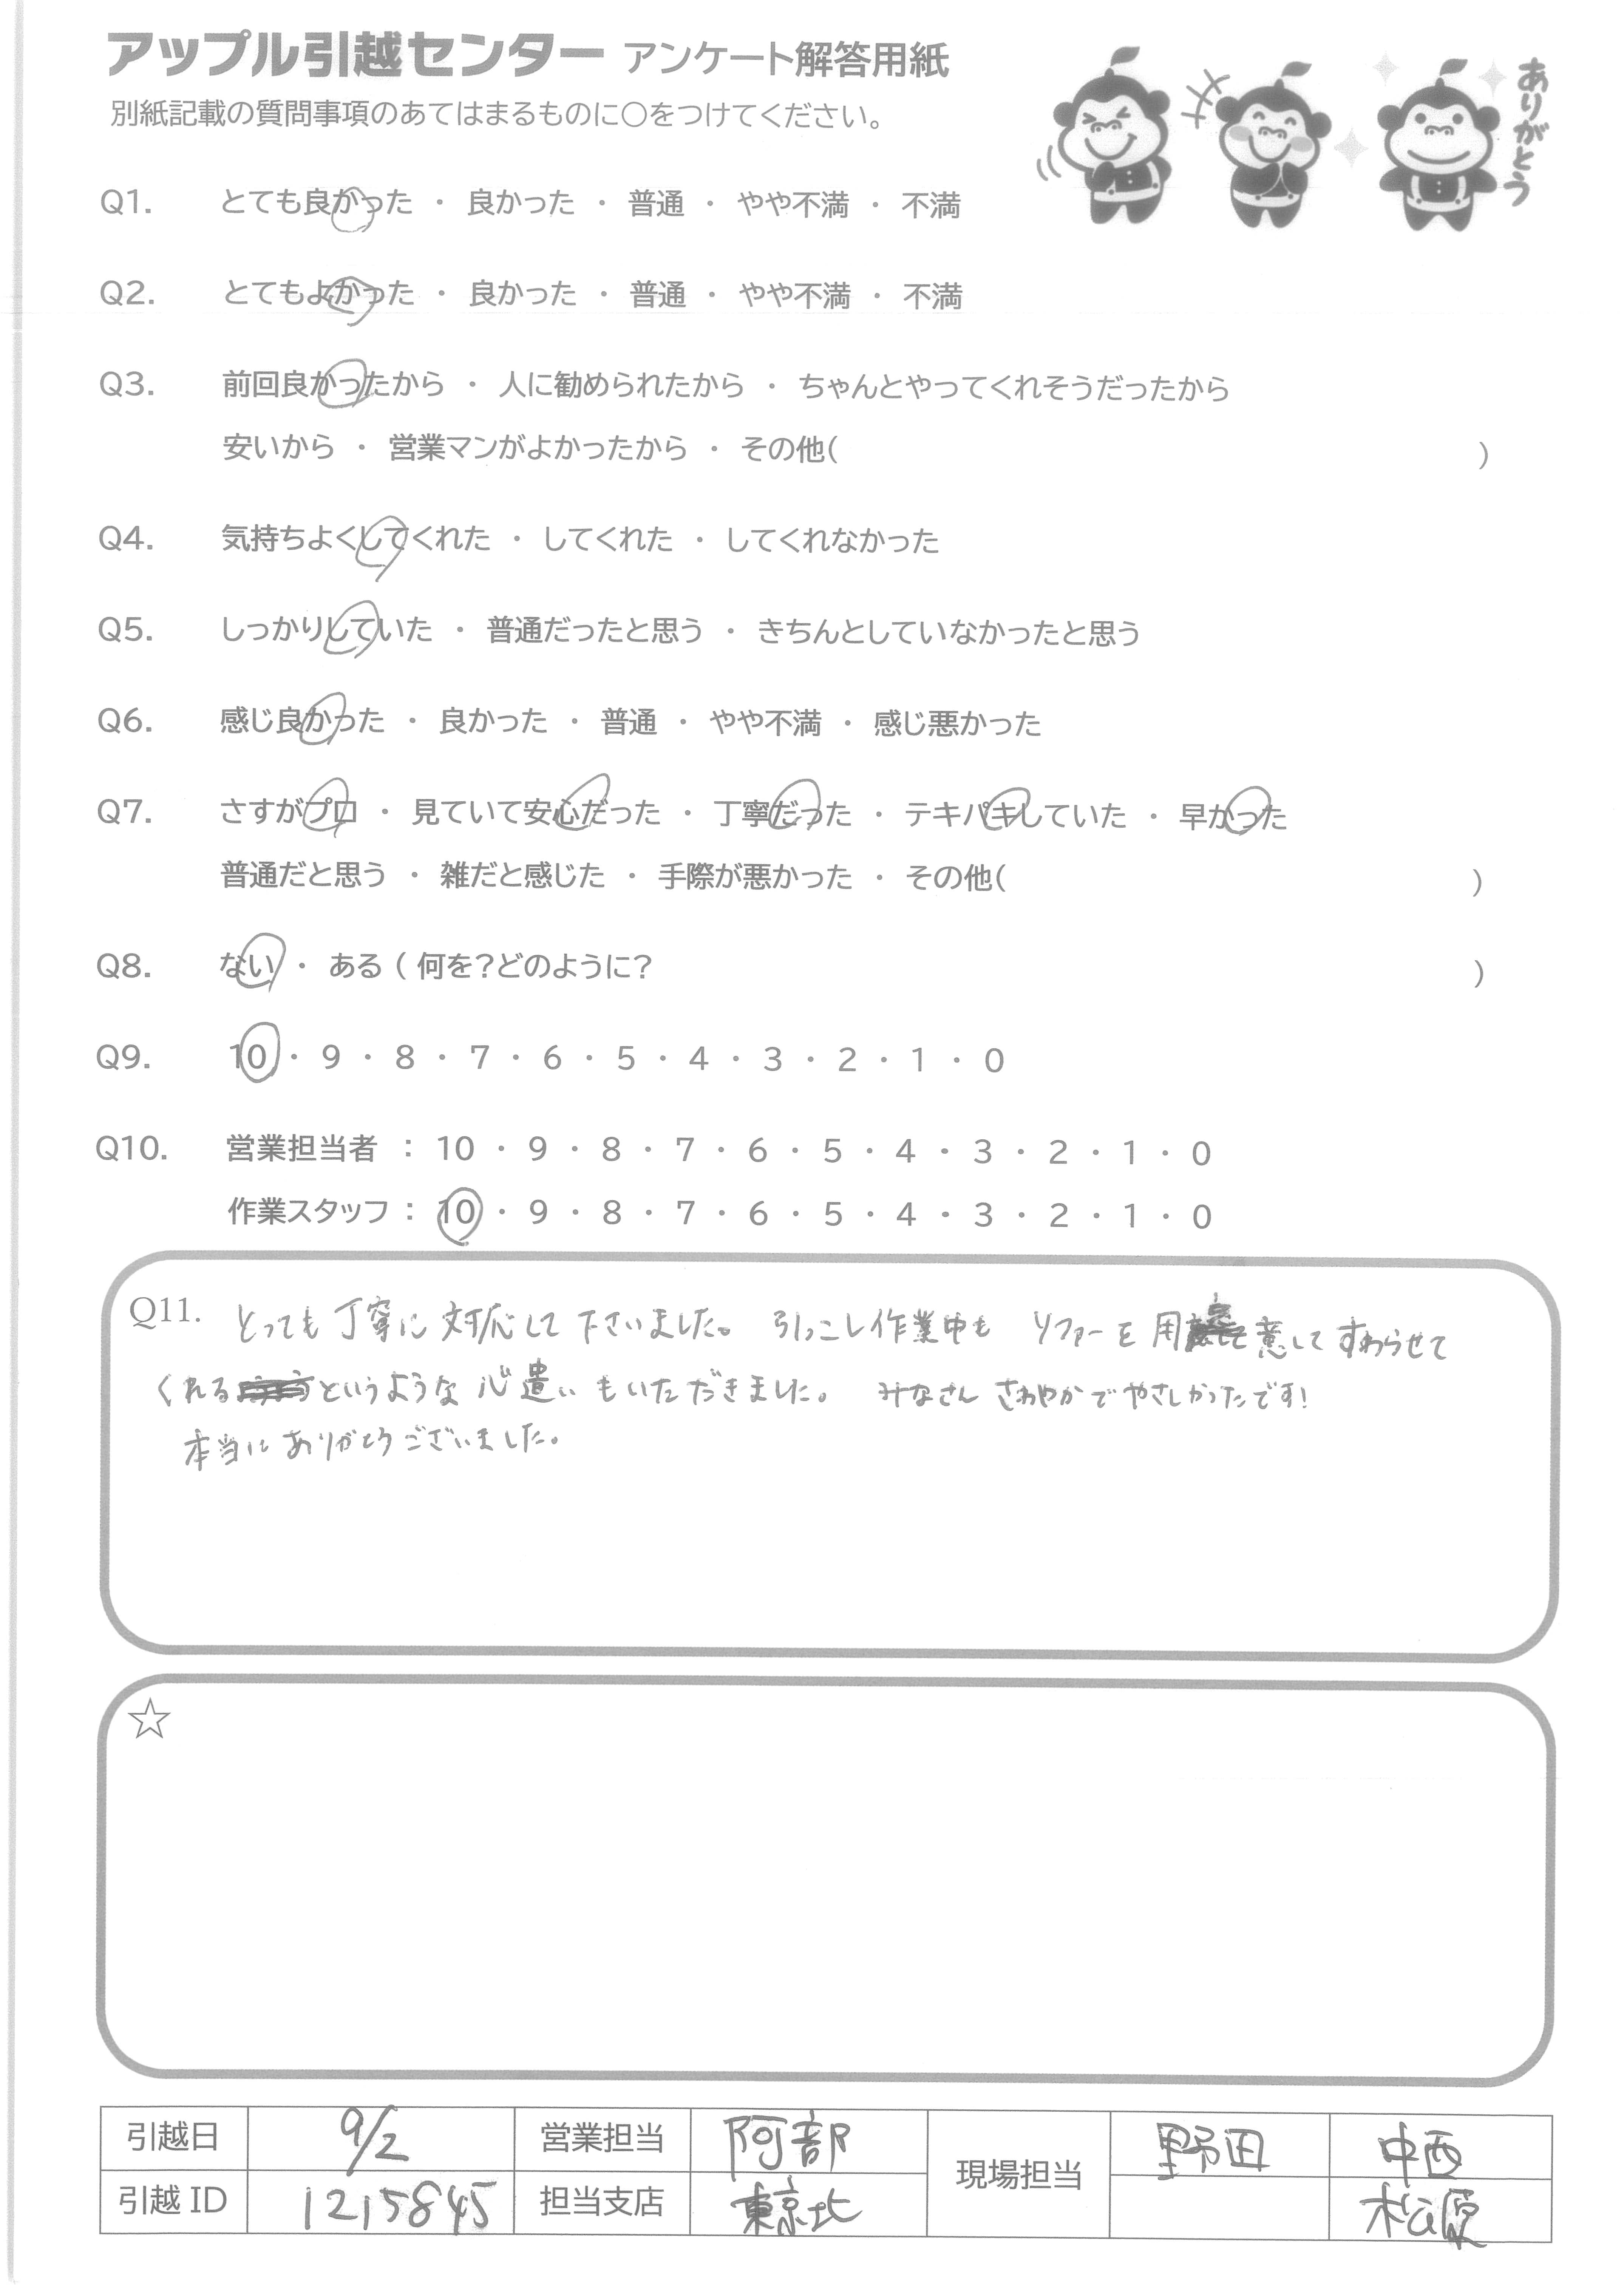 アップル引越センター アンケート解答用紙
別紙記載の質問事項のあてはまるものに○をつけてください。
ありがとう
Q1. とても良かった ・ 良かった ・ 普通 ・ やや不満 ・ 不満
Q2. とてもよかった ・ 良かった ・ 普通 ・ やや不満 ・ 不満
Q3. 前回良かったから ・ 人に勧められたから ・ ちゃんとやってくれそうだったから
安いから ・ 営業マンがよかったから ・ その他( )
Q4. 気持ちよくしてくれた ・ してくれた ・ してくれなかった
Q5. しっかりしていた ・ 普通だったと思う ・ きちんとしていなかったと思う
Q6. 感じ良かった ・ 良かった ・ 普通 ・ やや不満 ・ 感じ悪かった
Q7. さすがプロ ・ 見ていて安心だった ・ 丁寧だった ・ テキパキしていた ・ 早かった
普通だと思う ・ 雑だと感じた ・ 手際が悪かった ・ その他( )
Q8. ない ・ ある ( 何を?どのように? )
Q9. 10 ・ 9 ・ 8 ・ 7 ・ 6 ・ 5 ・ 4 ・ 3 ・ 2 ・ 1 ・ 0
Q10. 営業担当者 : 10 ・ 9 ・ 8 ・ 7 ・ 6 ・ 5 ・ 4 ・ 3 ・ 2 ・ 1 ・ 0
作業スタッフ : 10 ・ 9 ・ 8 ・ 7 ・ 6 ・ 5 ・ 4 ・ 3 ・ 2 ・ 1 ・ 0
Q11. とっても丁寧に対応して下さいました。 引っこし作業中も ソファーを用意してすわらせて
くれるというような心遣いもいただきました。 みなさんさわやかでやさしかったです!
本当にありがとうございました。
☆
引越日 9/2 営業担当 阿部 現場担当 野田 中西
引越 ID 1215845 担当支店 東京北 松原